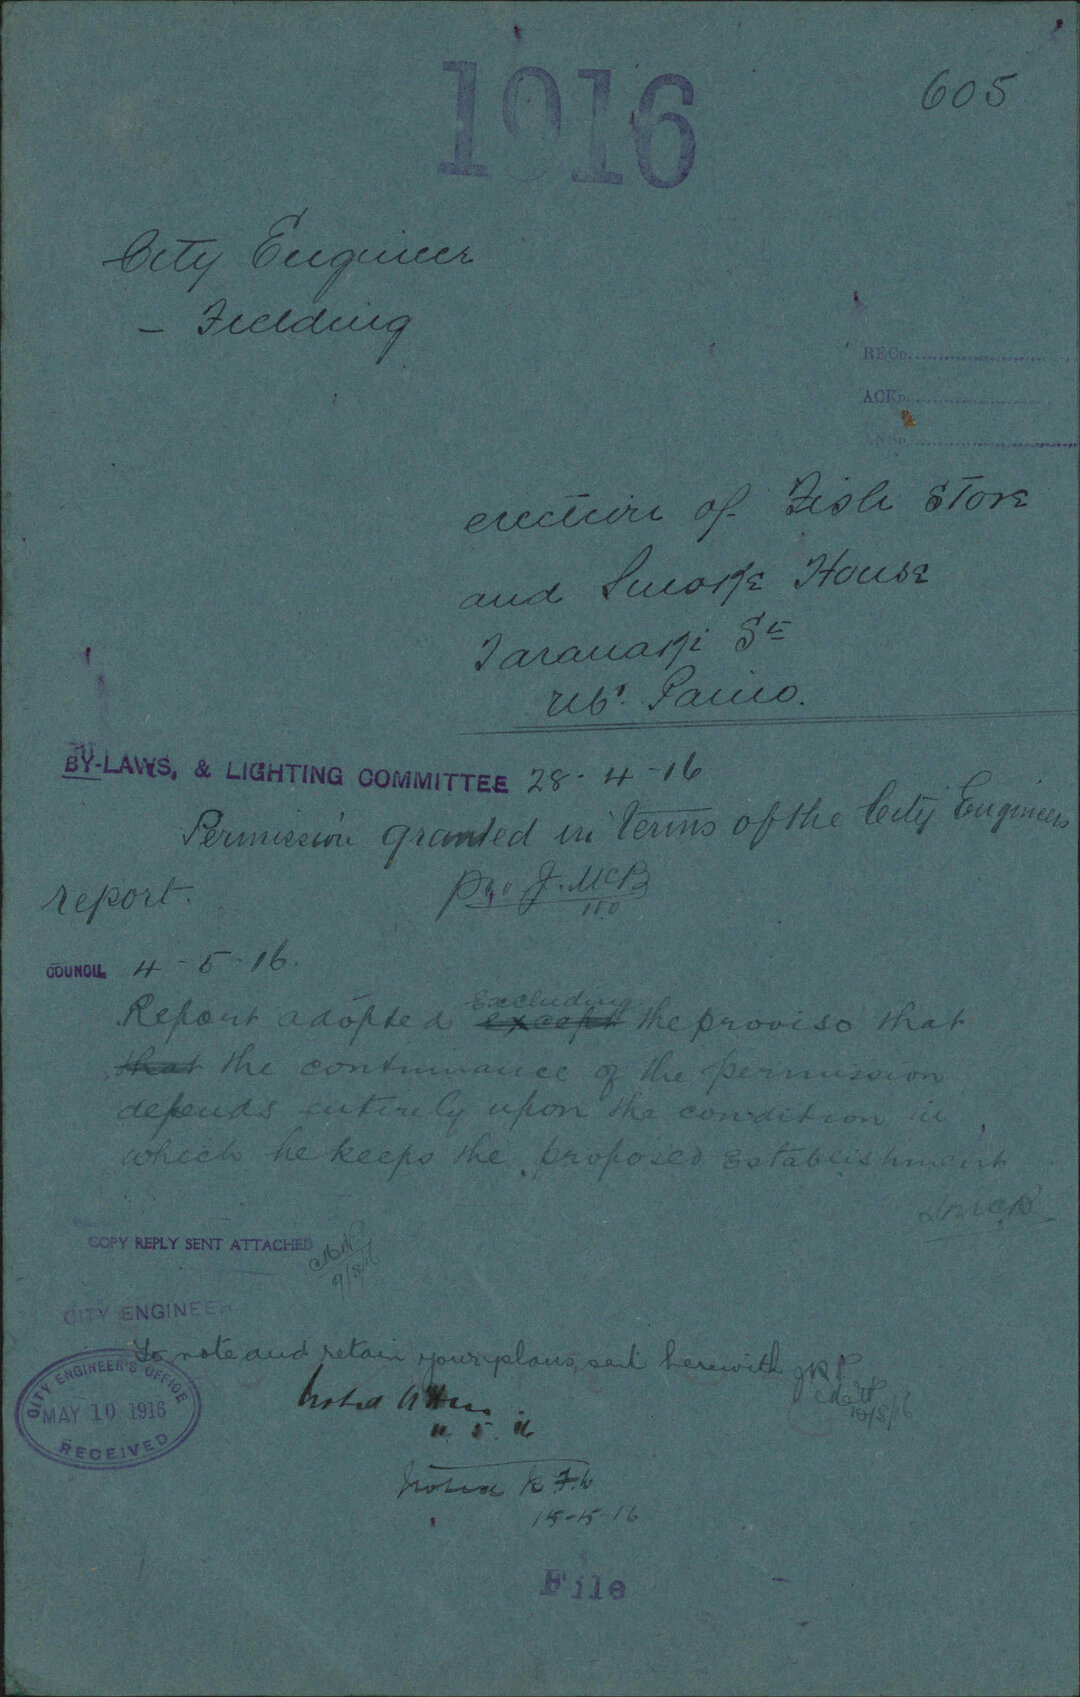 1916
605
City Engineer
- Fielding
RECD.
ACKD.
ANSD.
erection of Fish Store
and Smoke House
Taranaki St
Paino.
BY-LAWS, & LIGHTING COMMITTEE 28-4-16
Permission granted in terms of the City Engineers
report.
J. McB
COUNCIL 4-5-16.
Excluding
Report adopted except the proviso that
that the continuance of the permission
depends entirely upon the condition in
which he keeps the proposed establishment
COPY REPLY SENT ATTACHED
CITY ENGINEER
To note and retain your plans, sent herewith
10/5/16
CITY ENGINEER'S OFFICE
MAY 10 1916
RECEIVED
Noted
Noted
15-5-16
File